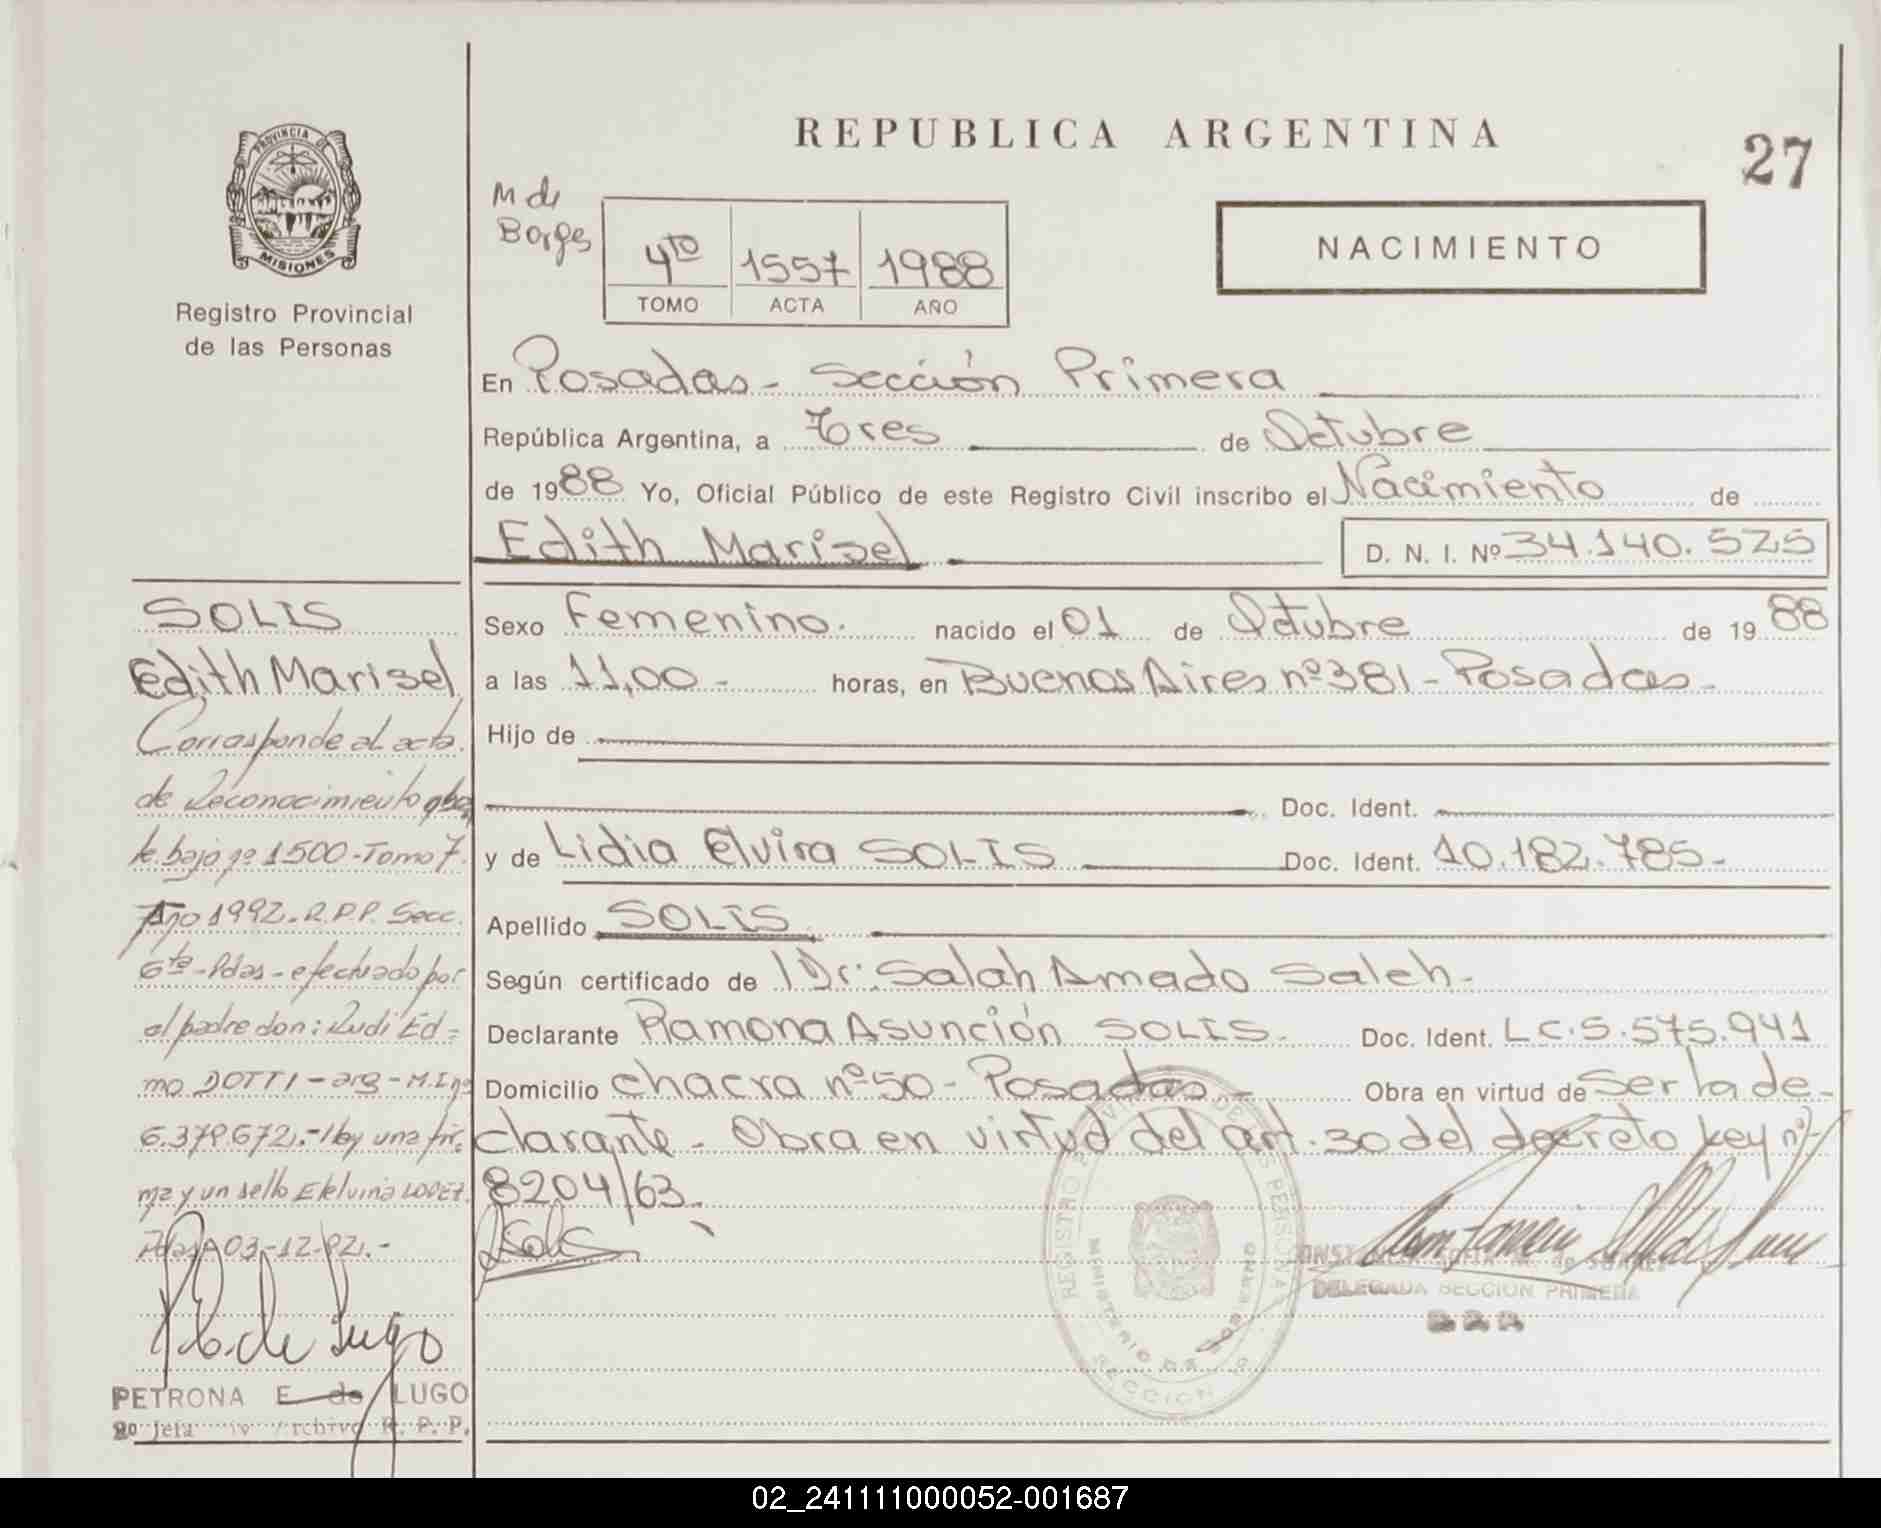 REPUBLICA ARGENTINA
27
PROVINCIA DE
MISIONES
Registro Provincial
de las Personas
M de
Borges
4to 1557 1988
TOMO ACTA AÑO
NACIMIENTO
En Posadas - Sección Primera
República Argentina, a Tres de Octubre
de 1988 Yo, Oficial Público de este Registro Civil inscribo el Nacimiento de
Edith Marisel D. N. I. Nº 34.140.525
Sexo Femenino. nacido el 01 de Octubre de 1988
a las 11,00 - horas, en Buenos Aires nº 381 - Posadas -
Hijo de
Doc. Ident.
y de Lidia Elvira SOLIS Doc. Ident. 10.182.785-
Apellido SOLIS
Según certificado de Dr: Salah Amado Saleh -
Declarante Ramona Asunción SOLIS - Doc. Ident. LC.5.575.941
Domicilio chacra nº 50 - Posadas - Obra en virtud de Ser la de-
clarante - Obra en virtud del art. 30 del decreto Ley nº
8204/63 -
Solis
REGISTRO PROVINCIAL DE LAS PERSONAS
MINISTERIO DE GOBIERNO
SECCION
DELEGADA SECCION PRIMERA
SOLIS
Edith Marisel
Corresponde al acta
de Reconocimiento obran
te bajo nº 1500 - Tomo 7
Año 1992 - R.P.P. Secc.
6ta - Pdas - efectuado por
el padre don: Rudi Ed=
mo DOTTI - arg - M.I nº
6.379.672.- Hay una fir
ma y un sello Etelvina LOPEZ.
Pdas 03-12-92.-
P. E. de Lugo
PETRONA E de LUGO
Archivo R. P. P.
02_241111000052-001687